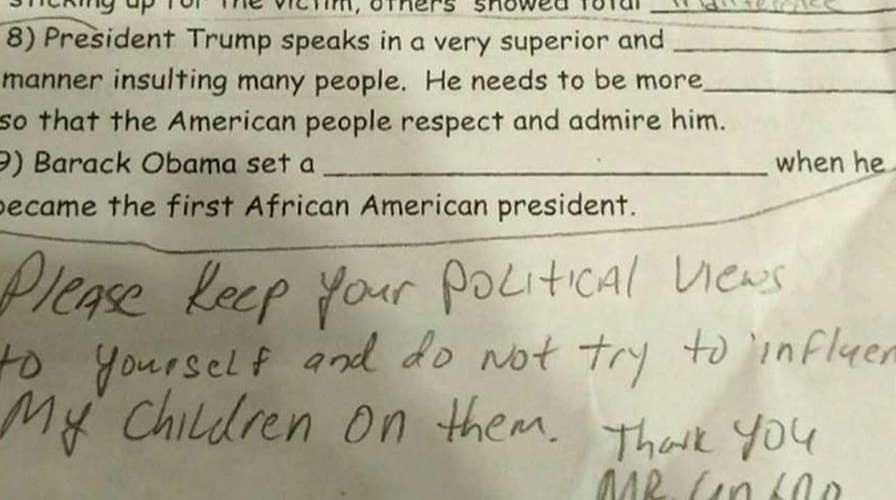 sticking up for the victim, others showed total indifference
8) President Trump speaks in a very superior and
manner insulting many people. He needs to be more
so that the American people respect and admire him.
9) Barack Obama set a when he
became the first African American president.
Please keep your POLITICAL Views
to yourself and do not try to influen
My Children on them. Thank You
MR.